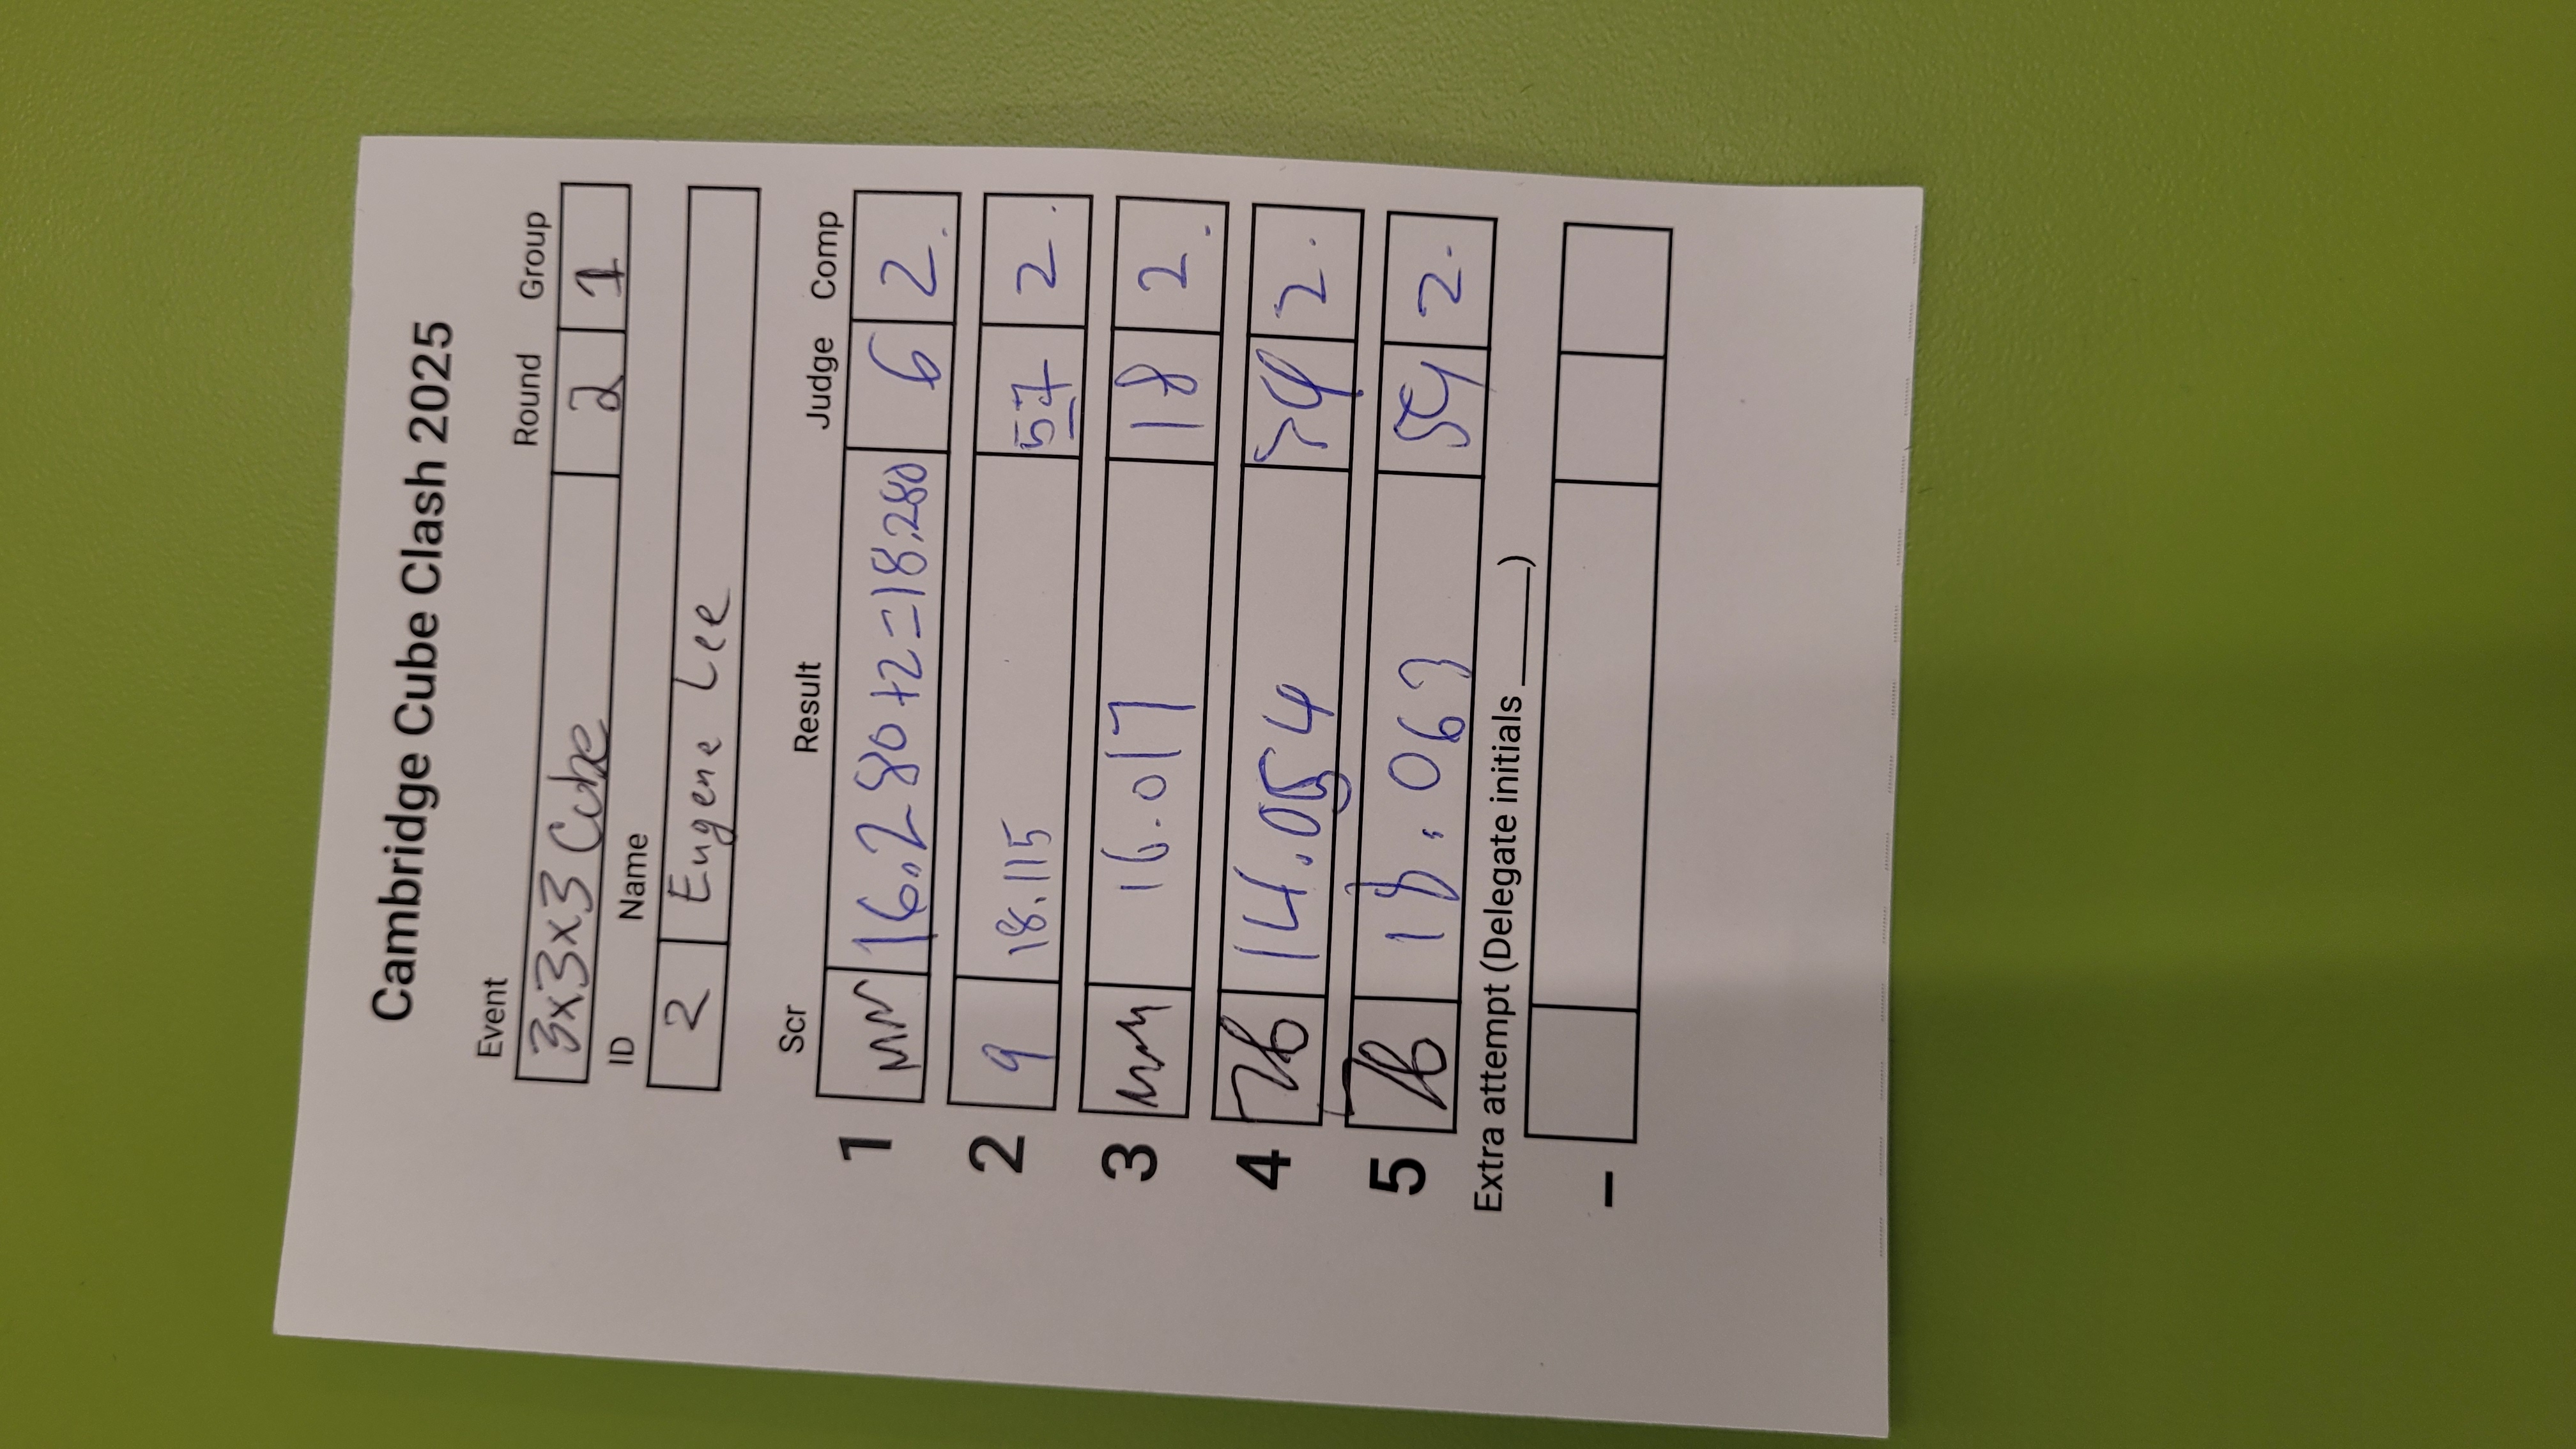 Cambridge Cube Clash 2025
Event Round Group
3x3x3 Cube 2 1
ID Name
2 Eugene Lee
Scr Result Judge Comp
1 16.280+2=18.280 6 2.
2 9 18.115 57 2.
3 16.017 18 2.
4 76 14.054 2.
5 76 18.063 59 2.
Extra attempt (Delegate initials ______)
–